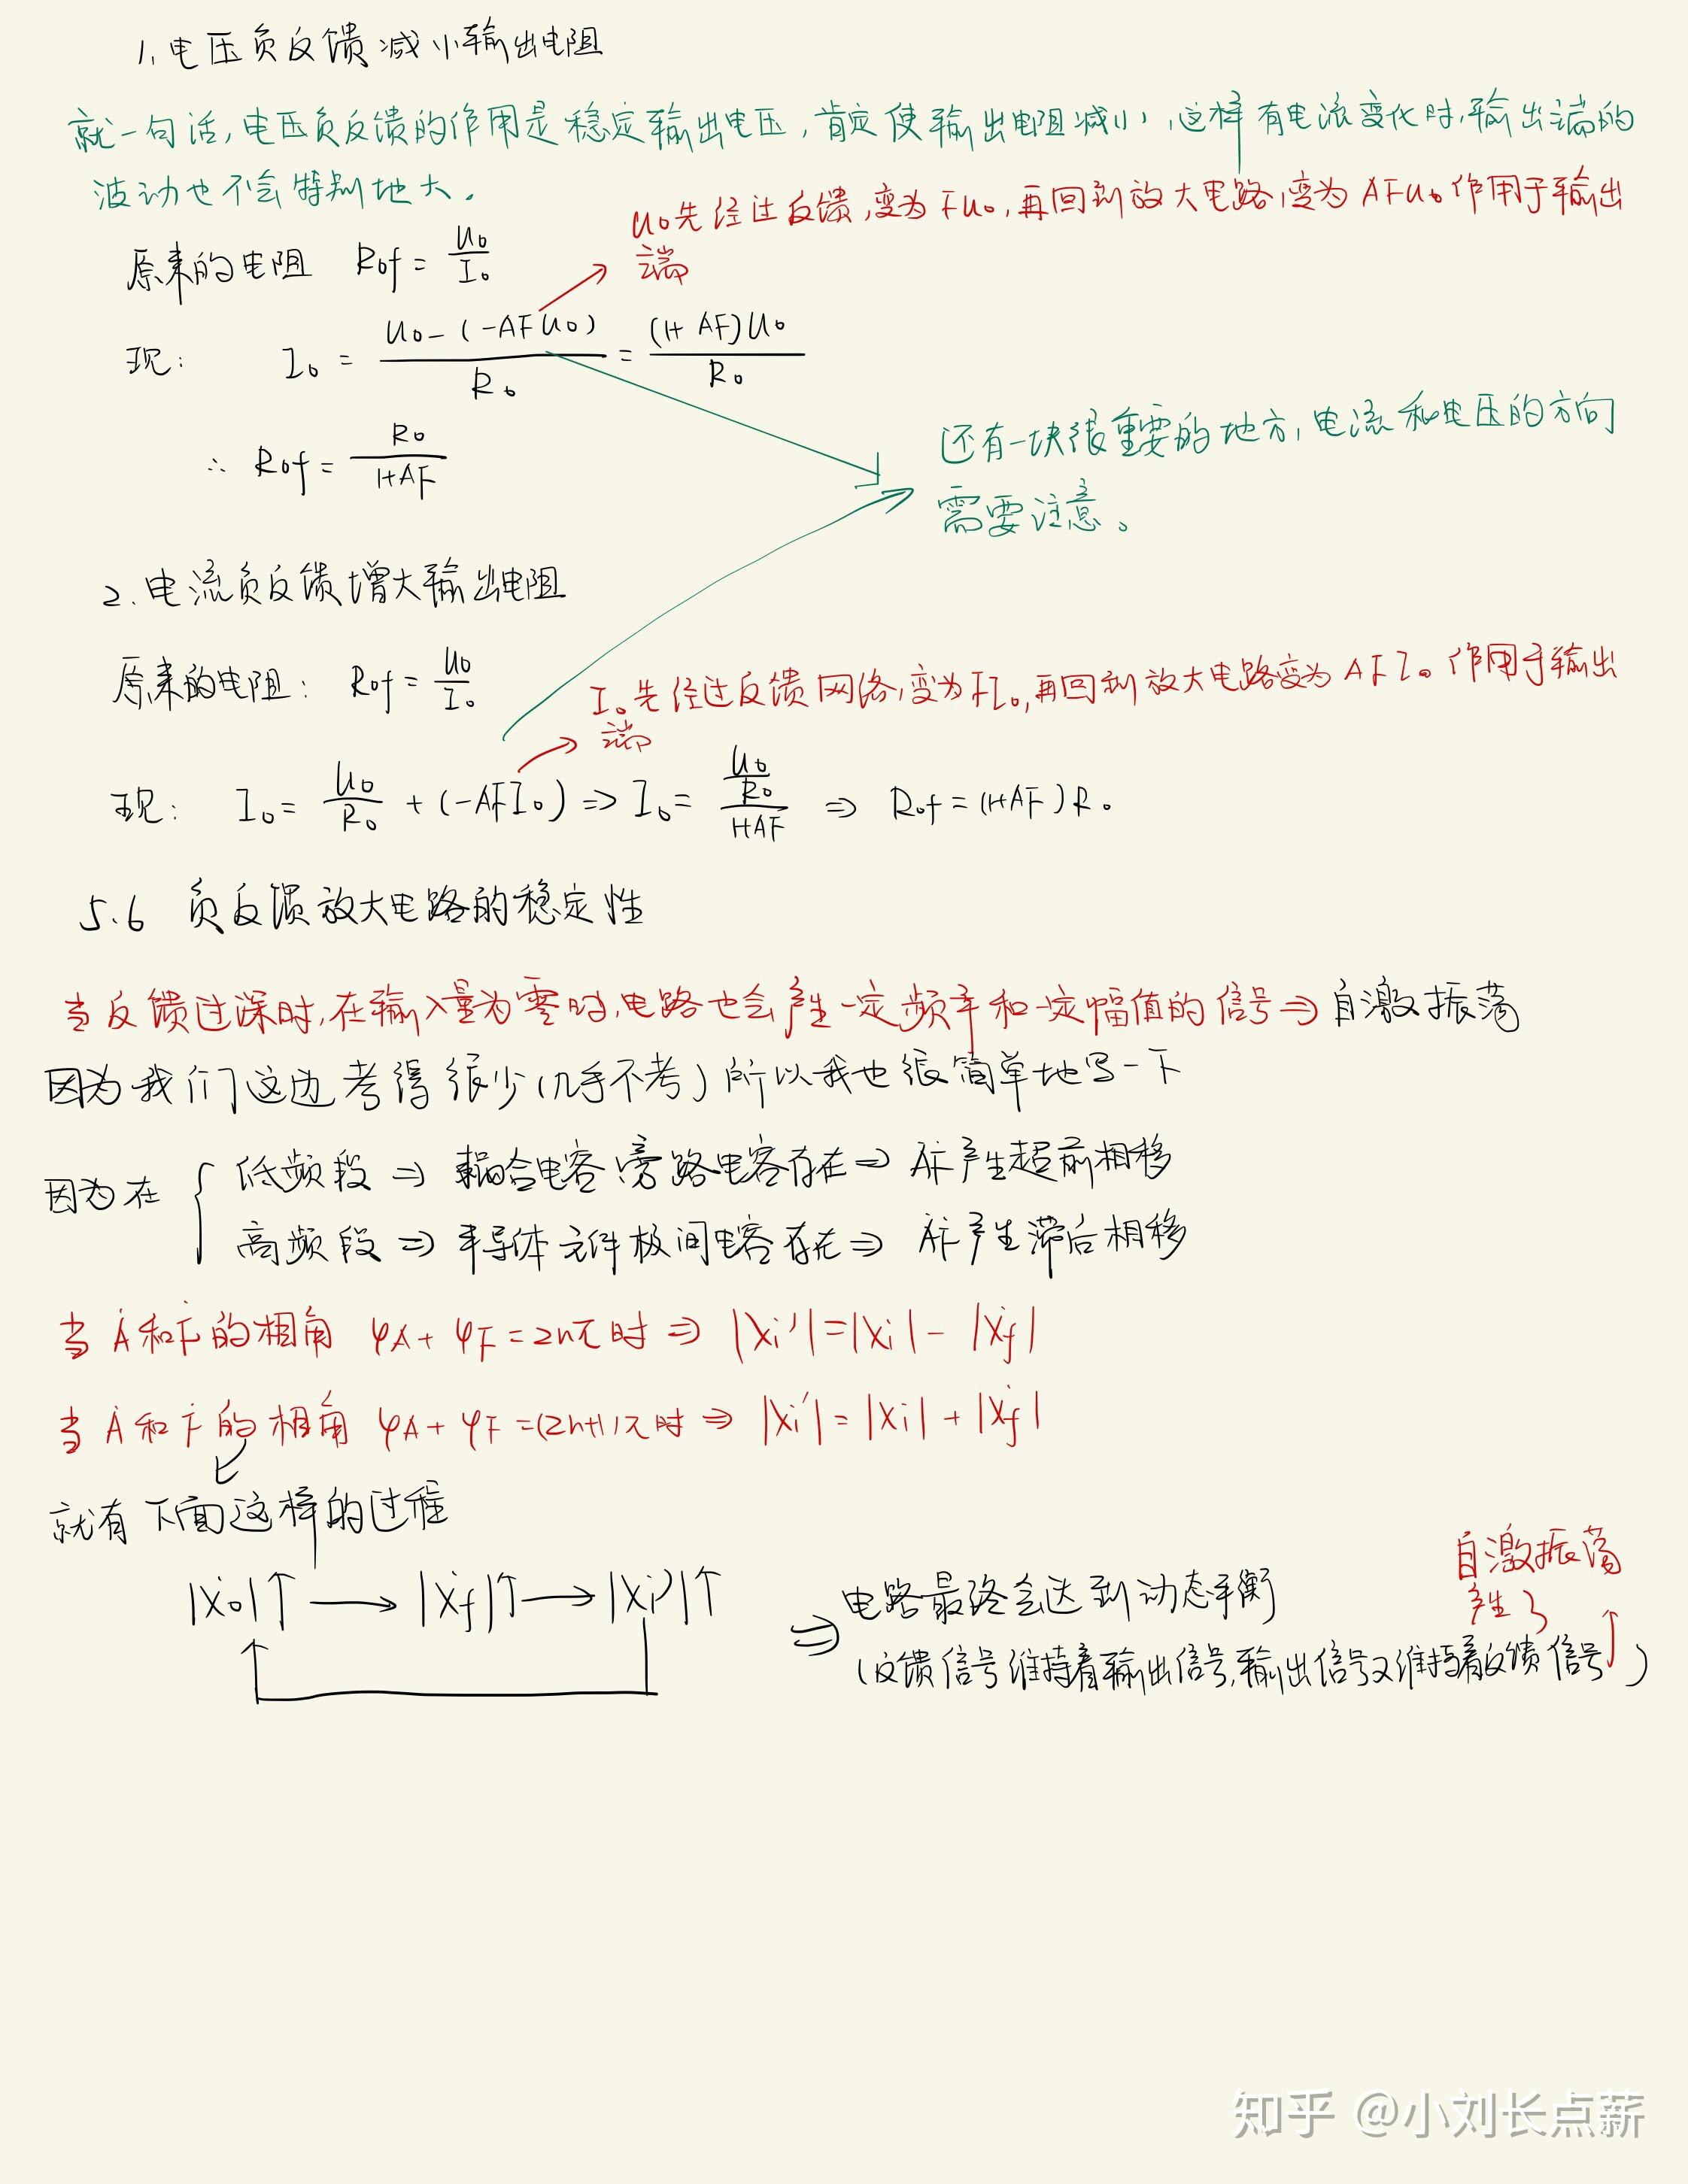 1. 电压负反馈减小输出电阻
就一句话,电压负反馈的作用是稳定输出电压,肯定使输出电阻减小,这样有电流变化时,输出端的
波动也不会特别地大。
U₀先经过反馈,变为FU₀,再回到放大电路,变为AFU₀作用于输出
端
原来的电阻 Rof = U₀/I₀
现: I₀ = (U₀-(-AFU₀))/R₀ = ((1+AF)U₀)/R₀
∴ Rof = R₀/(1+AF)
还有一块很重要的地方,电流和电压的方向
需要注意。
2. 电流负反馈增大输出电阻
原来的电阻: Rof = U₀/I₀
I₀先经过反馈网络,变为FI₀,再回到放大电路变为AFI₀作用于输出
端
现: I₀ = U₀/R₀ + (-AFI₀) ⇒ I₀ = (U₀/R₀)/(1+AF) ⇒ Rof = (1+AF)R₀
5.6 负反馈放大电路的稳定性
当反馈过深时,在输入量为零时,电路也会产生一定频率和一定幅值的信号⇒自激振荡
因为我们这边考得很少(几乎不考)所以我也很简单地写一下
因为在 { 低频段 ⇒ 耦合电容、旁路电容存在 ⇒ ȦḞ产生超前相移
高频段 ⇒ 半导体元件极间电容存在 ⇒ ȦḞ产生滞后相移
当Ȧ和Ḟ的相角 φA + φF = 2nπ时 ⇒ |Ẋi'| = |Ẋi| - |Ẋf|
当Ȧ和Ḟ的相角 φA + φF = (2n+1)π时 ⇒ |Ẋi'| = |Ẋi| + |Ẋf|
就有下面这样的过程
|Ẋo|↑ → |Ẋf|↑ → |Ẋi'|↑
⇒ 电路最终会达到动态平衡
(反馈信号维持着输出信号,输出信号又维持着反馈信号)
自激振荡
产生了
知乎 @小刘长点薪